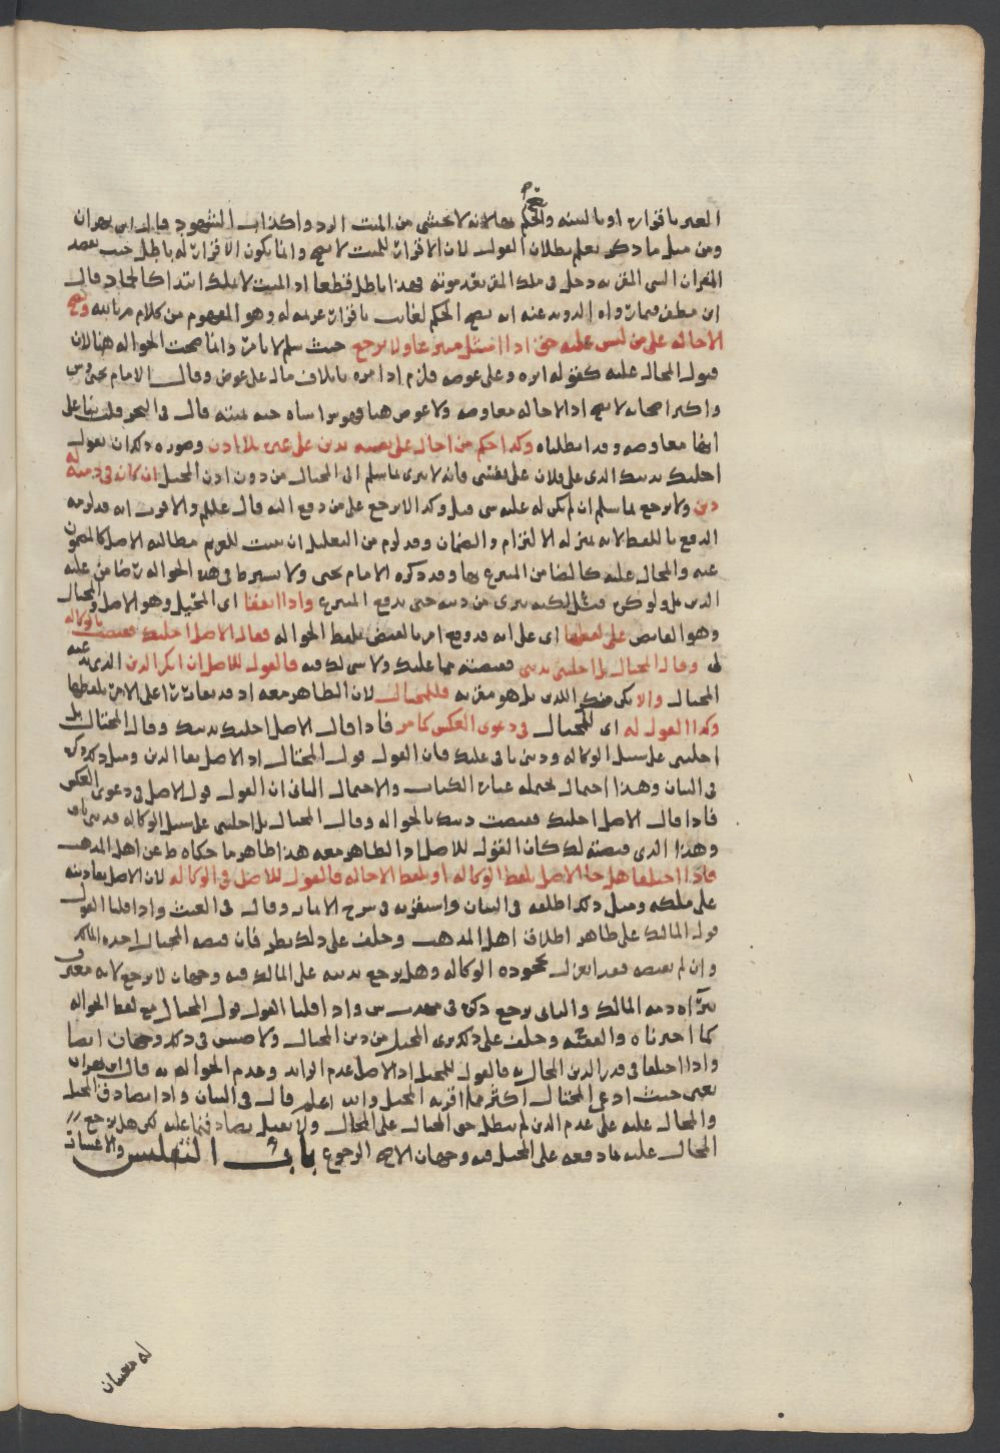 الغير باقراره او بالبينه والحكم بها لانه لا يخشى من الميت الرد واكذاب الشهود قال ابن بهران
ومن قبل ما ذكر يعلم بطلان القول لان الاقرار للميت لا يصح وانما يكون الاقرار له باطل حيث يقصد
المقر ان الشي المقر به دخل في ملك المقر بعد موته فهذا باطل قطعا اذ الميت لا يملك ابتدا كالجماد قال
ابن مظفر فيما رواه الدويد عنه انه يصح الحكم لغايب باقرار غريمه له وهو المفهوم من كلام مر بالله وتصح
الاحاله على من ليس عليه حق اذا امتثل متبرعا ولا يرجع حيث سلم لا بامر وانما صحت الحواله هنا لان
قبول المحال عليه كقوله ابره وعلي عوضه فلزم اذ امره باتلاف مال على عوض وقال الامام يحيى وس
واكثر اصحابه لا يصح اذ الاحاله معاوضه ولا عوض هنا فهو مواساه حسنه قال في البحر قلت بنا على
انها معاوضه وقد ابطلناه وكذا حكم من احال على نفسه بدين على غيره بلا اذن وصوره ذلك ان يقول
احلتك بدينك الذي على فلان على نفسي فانه لا يبرى ما سلم الى المحتال من دون اذن المحيل ان كان في ذمته له
دين ولا يرجع بما سلم ان لم يكن له عليه شي قيل وكذا لا يرجع على من دفع اليه قال عليلم والاقرب انه قد لزمه
الدفع باللفظ لانه بمنزله الالتزام والضمان وقد لزم من التعليل ان يثبت للغريم مطالبه الاصل كالمضمون
عنه والمحال عليه كالضامن المتبرع بها وقد ذكره الامام يحيى ولا يبرى ما في هذه الحواله رضا من عليه
الدين بل ولو كره فمثل لكنه يبرى من دينه حتى يدفع المتبرع واذا اتفقا اى المحيل وهو الاصل والمحتال
وهو القابض على لفظها اي على انه قد وقع امر بالقبض بلفظ الحواله فقال الاصل احلتك فقبضت بالوكاله
لي وقال المحتال بل احلتني بديني فقبضته مما عليك ولا شي لك فيه فالقول للاصل ان انكر الدين الذي يدعيه
المحتال والا يكن منكر للدين بل هو مقر به فللمحتال لان الظاهر معه اذ قد تصادقا على الامر بلفظها
وكذا القول له اي للمحتال في دعوى العكس كما مر فاذا قال الاصل احلتك بدينك وقال المحتال بل
احلتني على سبيل الوكاله وديني باقي عليك فان القول قول المحتال اذ الاصل بقا الدين ومثل ذلك ذكره
في البيان وهذا احتمال تحتمله عباره الكتاب والاحتمال الثاني ان القول قول الاصل في دعوى العكس
فاذا قال الاصل احلتك فقبضت دينك بالحواله وقال المحتال بل احلتني على سبيل الوكاله فديني باق
وهذا الذي قبضته لك كان القول للاصل اذ الظاهر معه هذا ظاهر ما حكاه ط عن اهل المذهب
فاذا اختلفا هل قال الاصل بلفظ الوكاله او بلفظ الاحاله فالقول للاصل في الوكاله لان الاصل بقا دينه
على ملكه ومثل ذلك اطلقه في البيان واستقربه في شرح الاثمار وقال في الغيث واذا قلنا القول
قول المالك على ظاهر اطلاق اهل المذهب وحلف على ذلك نظر فان قبضه المحتال اخذه المالك
وان لم يقبضه فقد انعزل بجحوده الوكاله وهل يرجع بدينه على المالك فيه وجهان لا يرجع لانه معترف
ببراه ذمه المالك والثاني يرجع ذكره في مهذب ش واذا قلنا القول قول المحتال مع لفظ الحواله
كما اخترناه والفقيه وحلف على ذلك برى المحيل من دين المحتال ولا صش في ذلك وجهان ايضا
واذا اختلفا في قدر الدين المحال به فالقول للمحيل اذ الاصل عدم الزايد وعدم الحواله به قال ابن بهران
يعني حيث ادعى المحتال اكثر مما اقر به المحيل والله اعلم قال في البيان واذا تصادق المحيل
والمحال عليه على عدم الدين لم يبطل حق المحتال على المحال ولا يقبل تصادقهما عليه لكن هل يرجع
المحال عليه بما دفعه على المحيل فيه وجهان الاصح الرجوع باب التفليس والاعسار
له معنيان